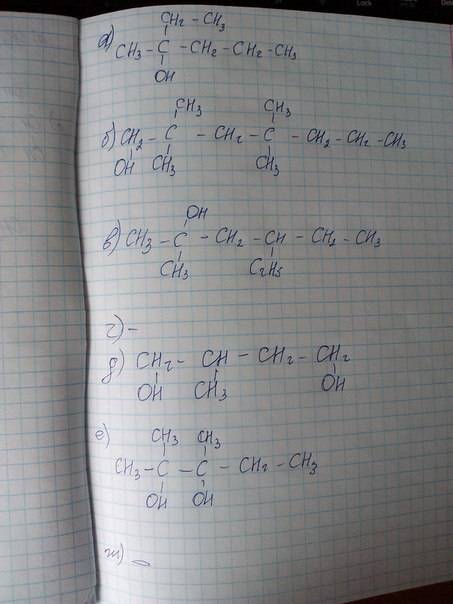 CH₂ – CH₃
а) CH₃ – C – CH₂ – CH₂ – CH₃
OH
CH₃ CH₃
б) CH₂ – C – CH₂ – C – CH₂ – CH₂ – CH₃
OH CH₃ CH₃
OH
в) CH₃ – C – CH₂ – CH – CH₂ – CH₃
CH₃ C₂H₅
г) –
д) CH₂ – CH – CH₂ – CH₂
OH CH₃ OH
CH₃ CH₃
е) CH₃ – C – C – CH₂ – CH₃
OH OH
ж) –